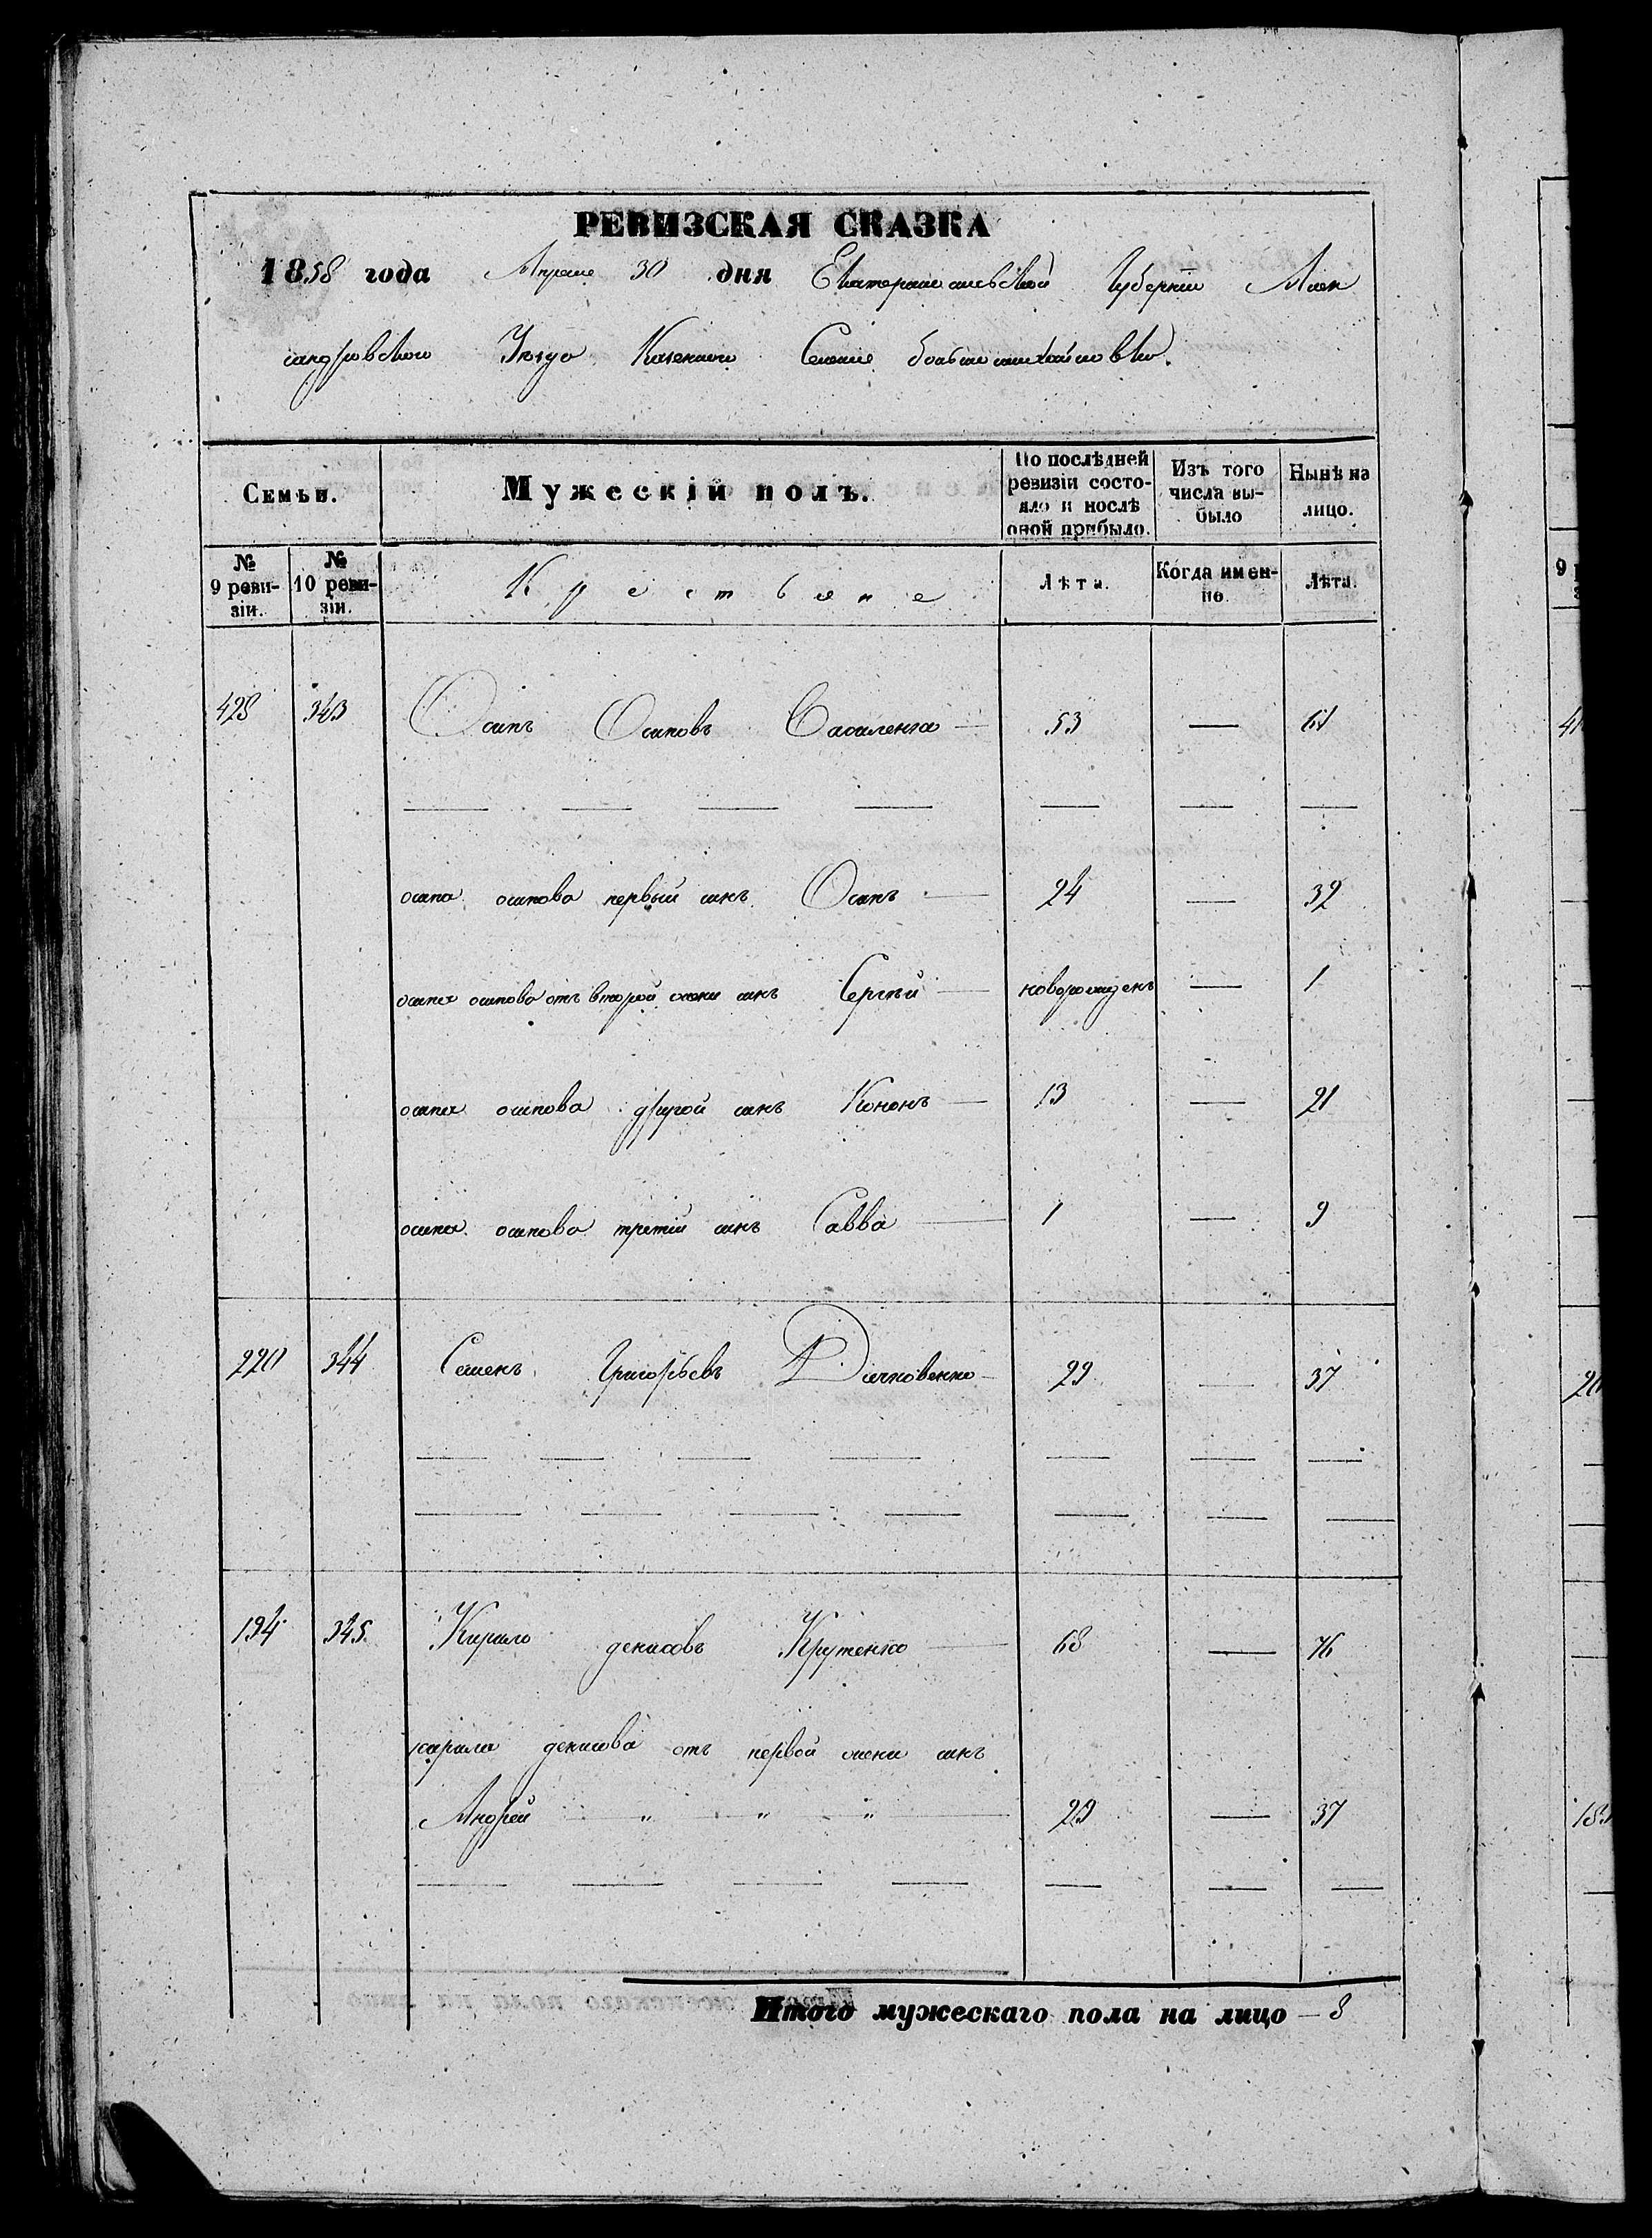 РЕВИЗСКАЯ СКАЗКА
1858 года Апреля 30 дня Екатеринославской Губернии Алек
сандровского Уезда Казенного Селения большемихайловки.
Семьи. Мужескій полъ. По послѣдней ревизіи состояло и послѣ оной прибыло. Изъ того числа выбыло Нынѣ на лицо.
№ 9 ревизіи. № 10 ревизіи. Крестьяне Лѣта. Когда именно. Лѣта.
428 343 Осипъ Осиповъ Василенко 53 — 61
осипа осипова первый сынъ Осипъ 24 — 32
осипа осипова отъ второй жены сынъ Сергѣй новорожденъ — 1
осипа осипова другой сынъ Кононъ 13 — 21
осипа осипова третій сынъ Савва 1 — 9
220 344 Семенъ Григорьевъ 29 — 37
194 345. Кирило денисовъ Крутенко 68 — 76
кирила денисова отъ первой жены сынъ
Андрей " " " 29 — 37
Итого мужескаго пола на лицо — 8
9